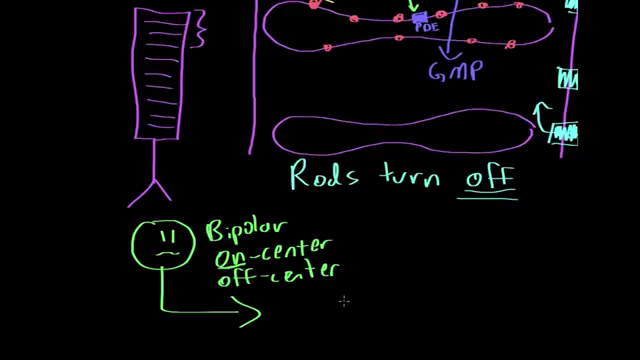 PDE
GMP
Rods turn off
Bipolar
on-center
off-center